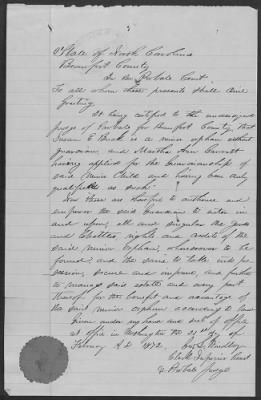 State of North Carolina
Beaufort County
In the Probate Court
To all whom these presents shall come
Greeting
It being certified to the undersigned
judge of Probate for Beaufort County, that
E is a minor orphan without
guardian, and Martha Ann
having applied for the Guardianship of
said minor Child and having been duly
qualified as such:
Now these are therefore to authorise and
empower the said Guardian to enter in
and upon, all and singular the goods
and Chattels, rights and credits of the
said minor Orphan, wheresoever to be
found, and the same to take into pos-
session, secure and improve, and further
to manage said estate and every part
thereof for the benefit and advantage of
the said minor orphan according to law
Given under my hand and seal of office
at office in Washington the 21st day of
February A D 1872.
Clerk Superior Court
& Probate Judge